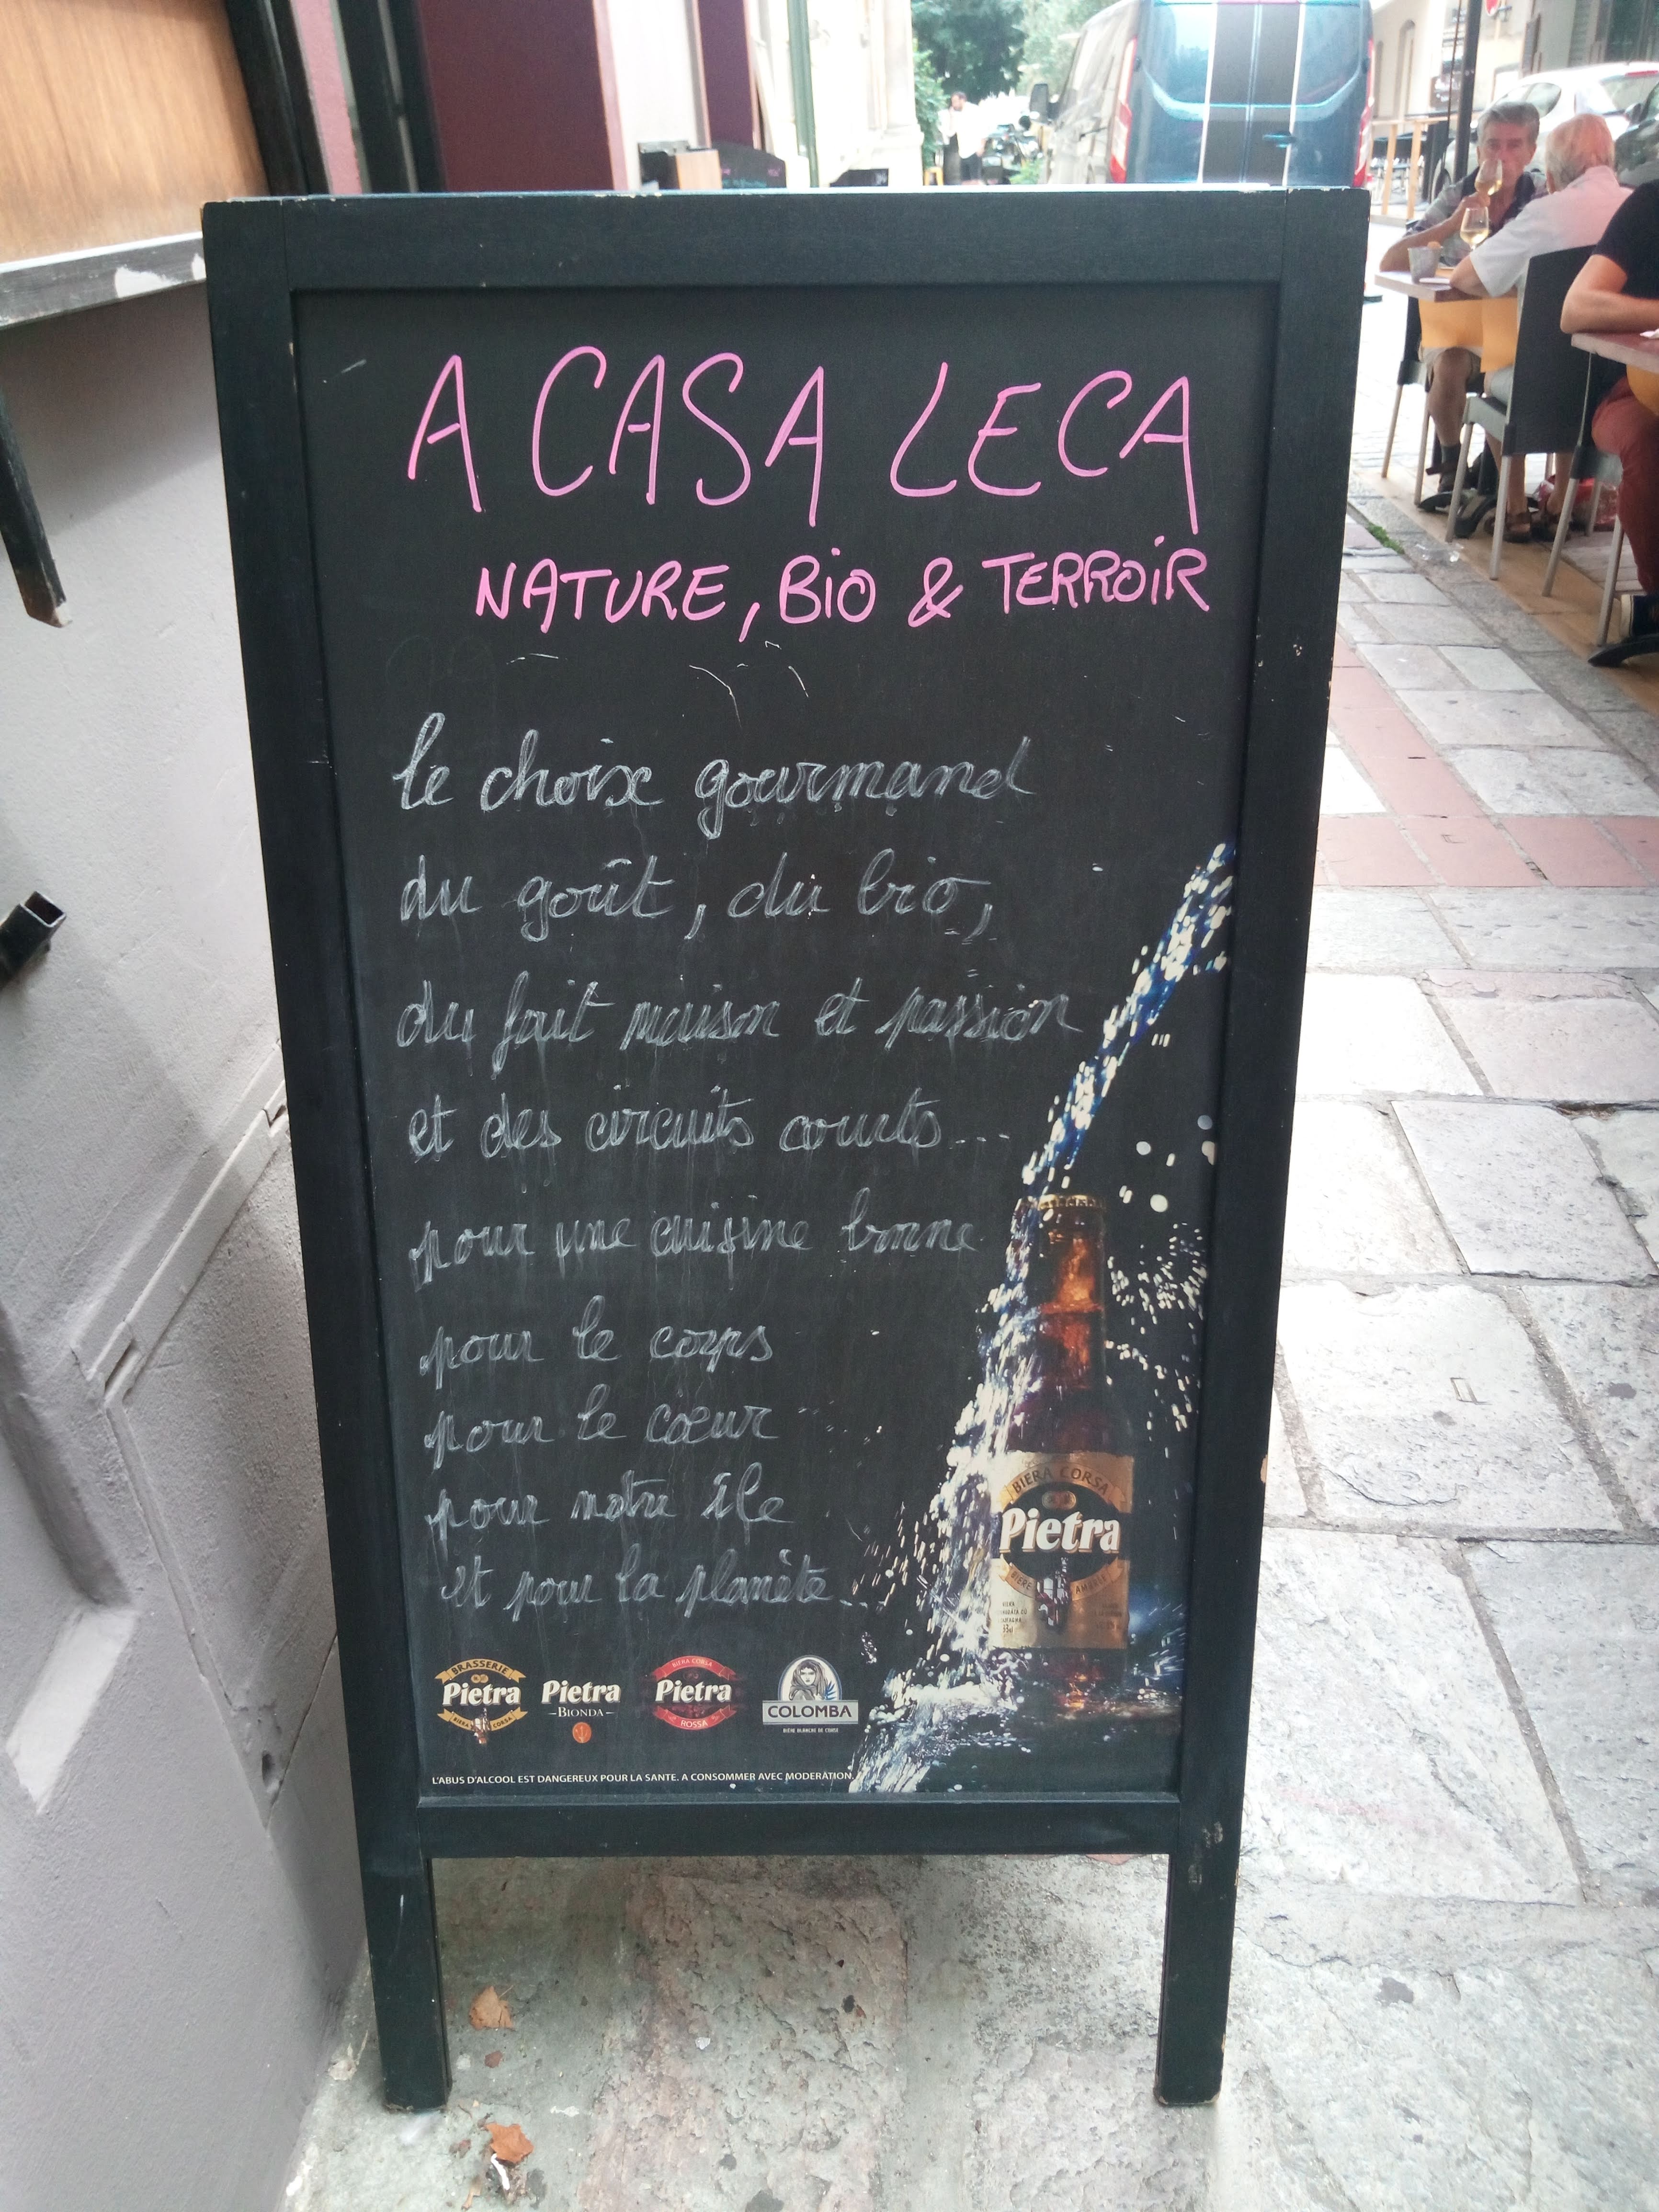 A CASA LECA
NATURE, BiO & TERROiR
le choix gourmand
du goût, du bio,
du fait maison et passion
et des circuits courts...
pour une cuisine bonne
pour le corps
pour le cœur
pour notre île
et pour la planète...
BIERA CORSA
Pietra
BIÈRE AMBRÉE
BRASSERIE
Pietra
BIERA CORSA
Pietra
BIONDA
BIERA CORSA
Pietra
ROSSA
COLOMBA
BIÈRE BLANCHE DE CORSE
L'ABUS D'ALCOOL EST DANGEREUX POUR LA SANTE. A CONSOMMER AVEC MODERATION.